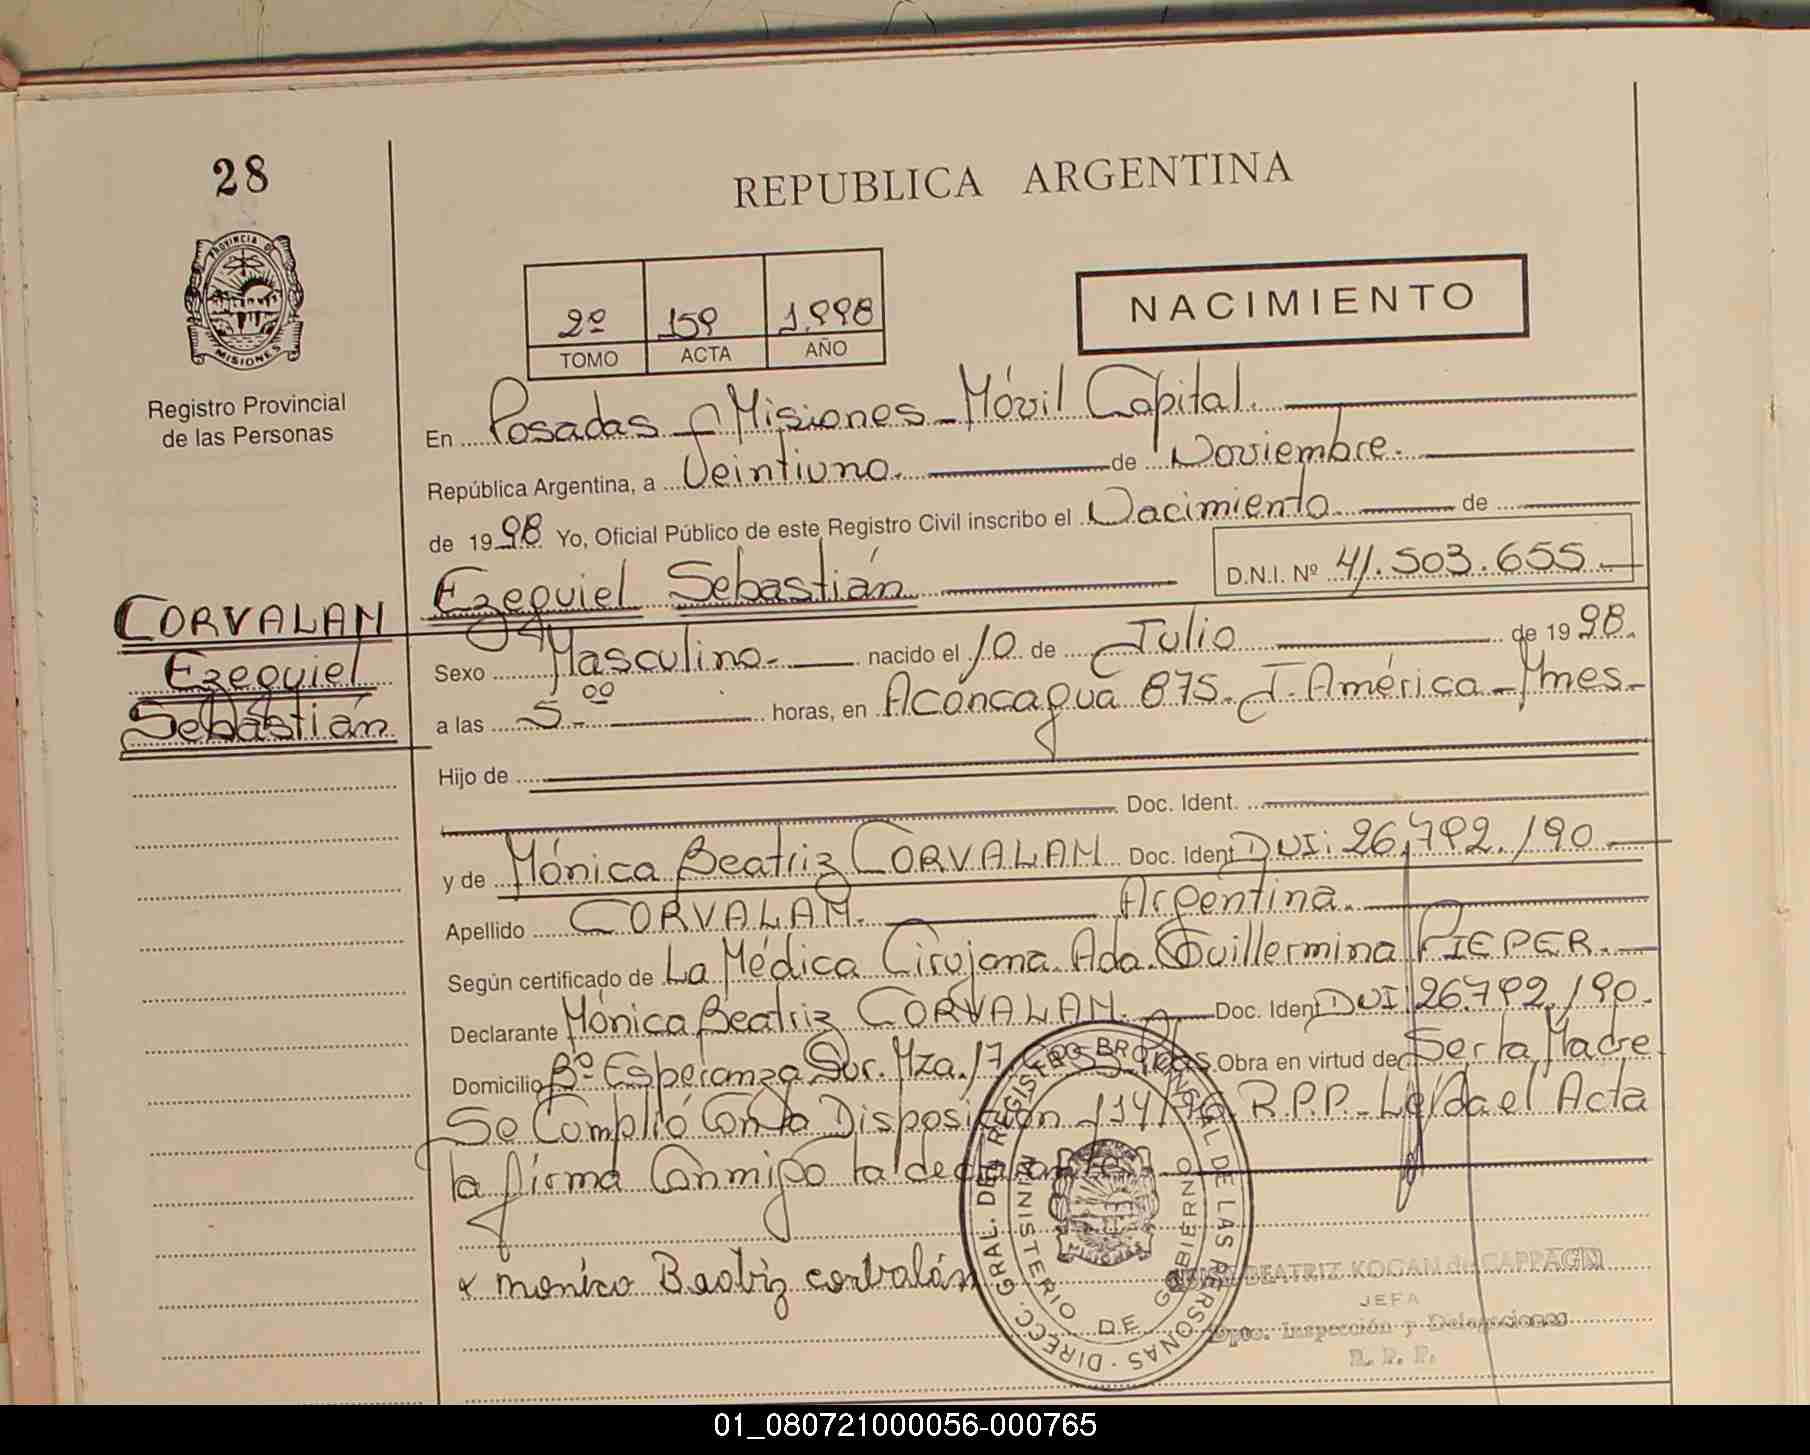 28
REPUBLICA ARGENTINA
PROVINCIA DE
MISIONES
2º 159 1.998
TOMO ACTA AÑO
NACIMIENTO
Registro Provincial
de las Personas
En Posadas - Misiones - Móvil Capital.
República Argentina, a Veintiuno. de Noviembre.
de 1998 Yo, Oficial Público de este Registro Civil inscribo el Nacimiento de
Ezequiel Sebastián D.N.I. Nº 41.503.655.
CORVALAN
Ezequiel
Sebastián
Sexo Masculino. nacido el 10 de Julio de 1998.
a las 5.ºº horas, en Aconcagua 875. J. América - Mnes-
Hijo de
Doc. Ident.
y de Mónica Beatriz CORVALAN Doc. Ident DNI: 26.792.190
Apellido CORVALAN. Argentina.
Según certificado de La Médica Cirujana Ada Guillermina PIEPER.
Declarante Mónica Beatriz CORVALAN. Doc. Ident DNI 26.792.190.
Domicilio Bº Esperanza Sur. Mza. 17 Obra en virtud de Ser la Madre
Se Cumplió Con la Disposición R.P.P. - Leída el Acta
la firma Conmigo la declarante
x monica Beatriz corvalán
DIRECC. GRAL. DEL REGISTRO PROVINCIAL DE LAS PERSONAS
MINISTERIO DE GOBIERNO
BEATRIZ KOGAN de CAPPAGNI
JEFA
Dpto. Inspección y Delegaciones
R. P. P.
01_080721000056-000765